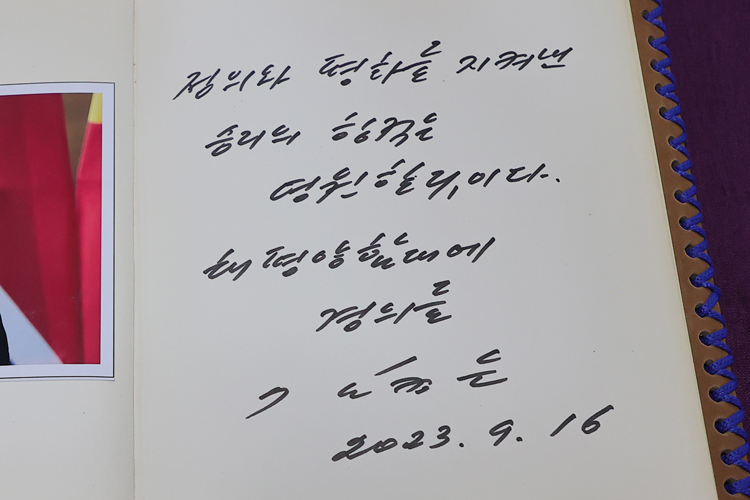 정의와 평화를 지켜낸
승리의 항적은
영원할것이다.
태평양함대에
경의를
김정은
2023. 9. 16